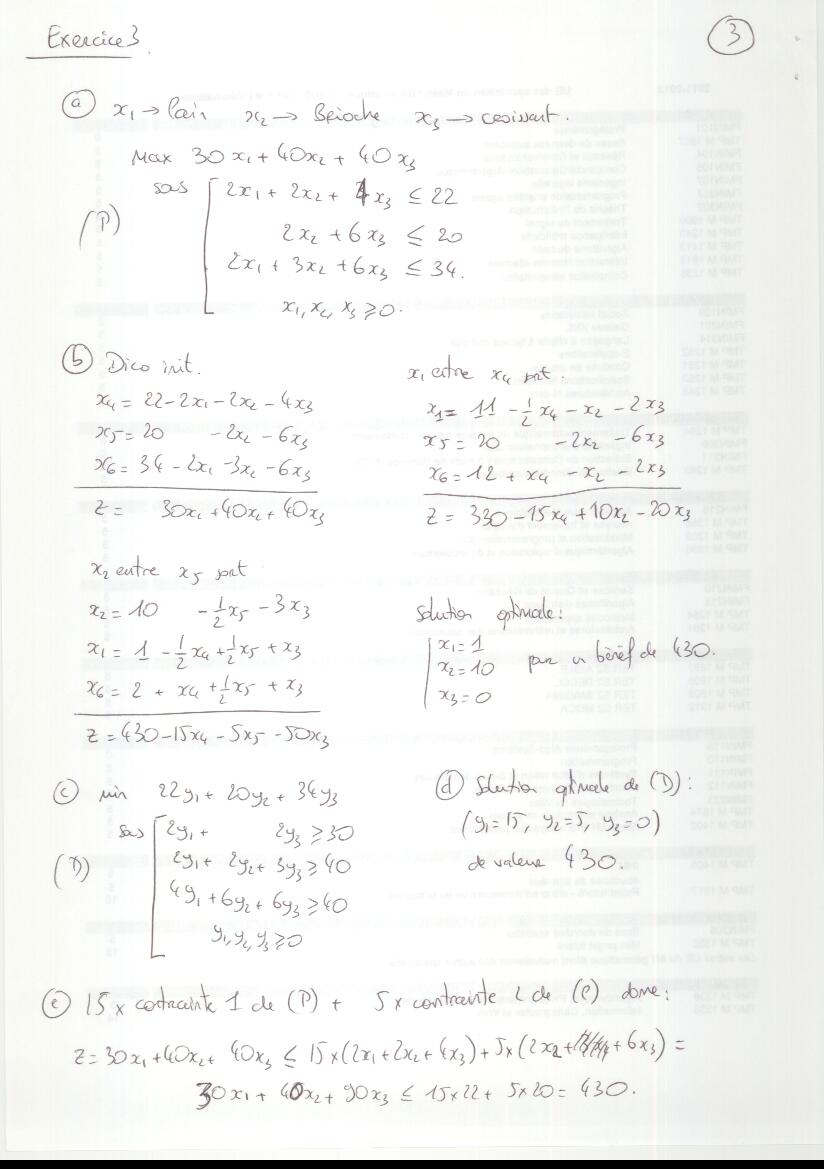 Exercice 3
3
(a) x₁ → Pain x₂ → Brioche x₃ → croissant.
Max 30x₁ + 40x₂ + 40x₃
sas 2x₁ + 2x₂ + 4x₃ ≤ 22
(P)
2x₂ + 6x₃ ≤ 20
2x₁ + 3x₂ + 6x₃ ≤ 34.
x₁, x₂, x₃ ≥ 0.
(b) Dico init.
x₄ = 22 - 2x₁ - 2x₂ - 4x₃
x₅ = 20 - 2x₂ - 6x₃
x₆ = 34 - 2x₁ - 3x₂ - 6x₃
z = 30x₁ + 40x₂ + 40x₃
x₁ entre x₄ sort.
x₁ = 11 - 1/2 x₄ - x₂ - 2x₃
x₅ = 20 - 2x₂ - 6x₃
x₆ = 12 + x₄ - x₂ - 2x₃
z = 330 - 15x₄ + 10x₂ - 20x₃
x₂ entre x₅ sort
x₂ = 10 - 1/2 x₅ - 3x₃
x₁ = 1 - 1/2 x₄ + 1/2 x₅ + x₃
x₆ = 2 + x₄ + 1/2 x₅ + x₃
z = 430 - 15x₄ - 5x₅ - 50x₃
Solution optimale:
x₁ = 1
x₂ = 10 pour un bénéf de 430.
x₃ = 0
(c) min 22y₁ + 20y₂ + 34y₃
sas 2y₁ + 2y₃ ≥ 30
2y₁ + 2y₂ + 3y₃ ≥ 40
(D)
4y₁ + 6y₂ + 6y₃ ≥ 40
y₁, y₂, y₃ ≥ 0
(d) Solution optimale de (D):
(y₁ = 15, y₂ = 5, y₃ = 0)
de valeur 430.
(e) 15 × contrainte 1 de (P) + 5 × contrainte 2 de (P) donne:
z = 30x₁ + 40x₂ + 40x₃ ≤ 15 × (2x₁ + 2x₂ + 4x₃) + 5 × (2x₂ + 6x₃) =
30x₁ + 40x₂ + 90x₃ ≤ 15 × 22 + 5 × 20 = 430.